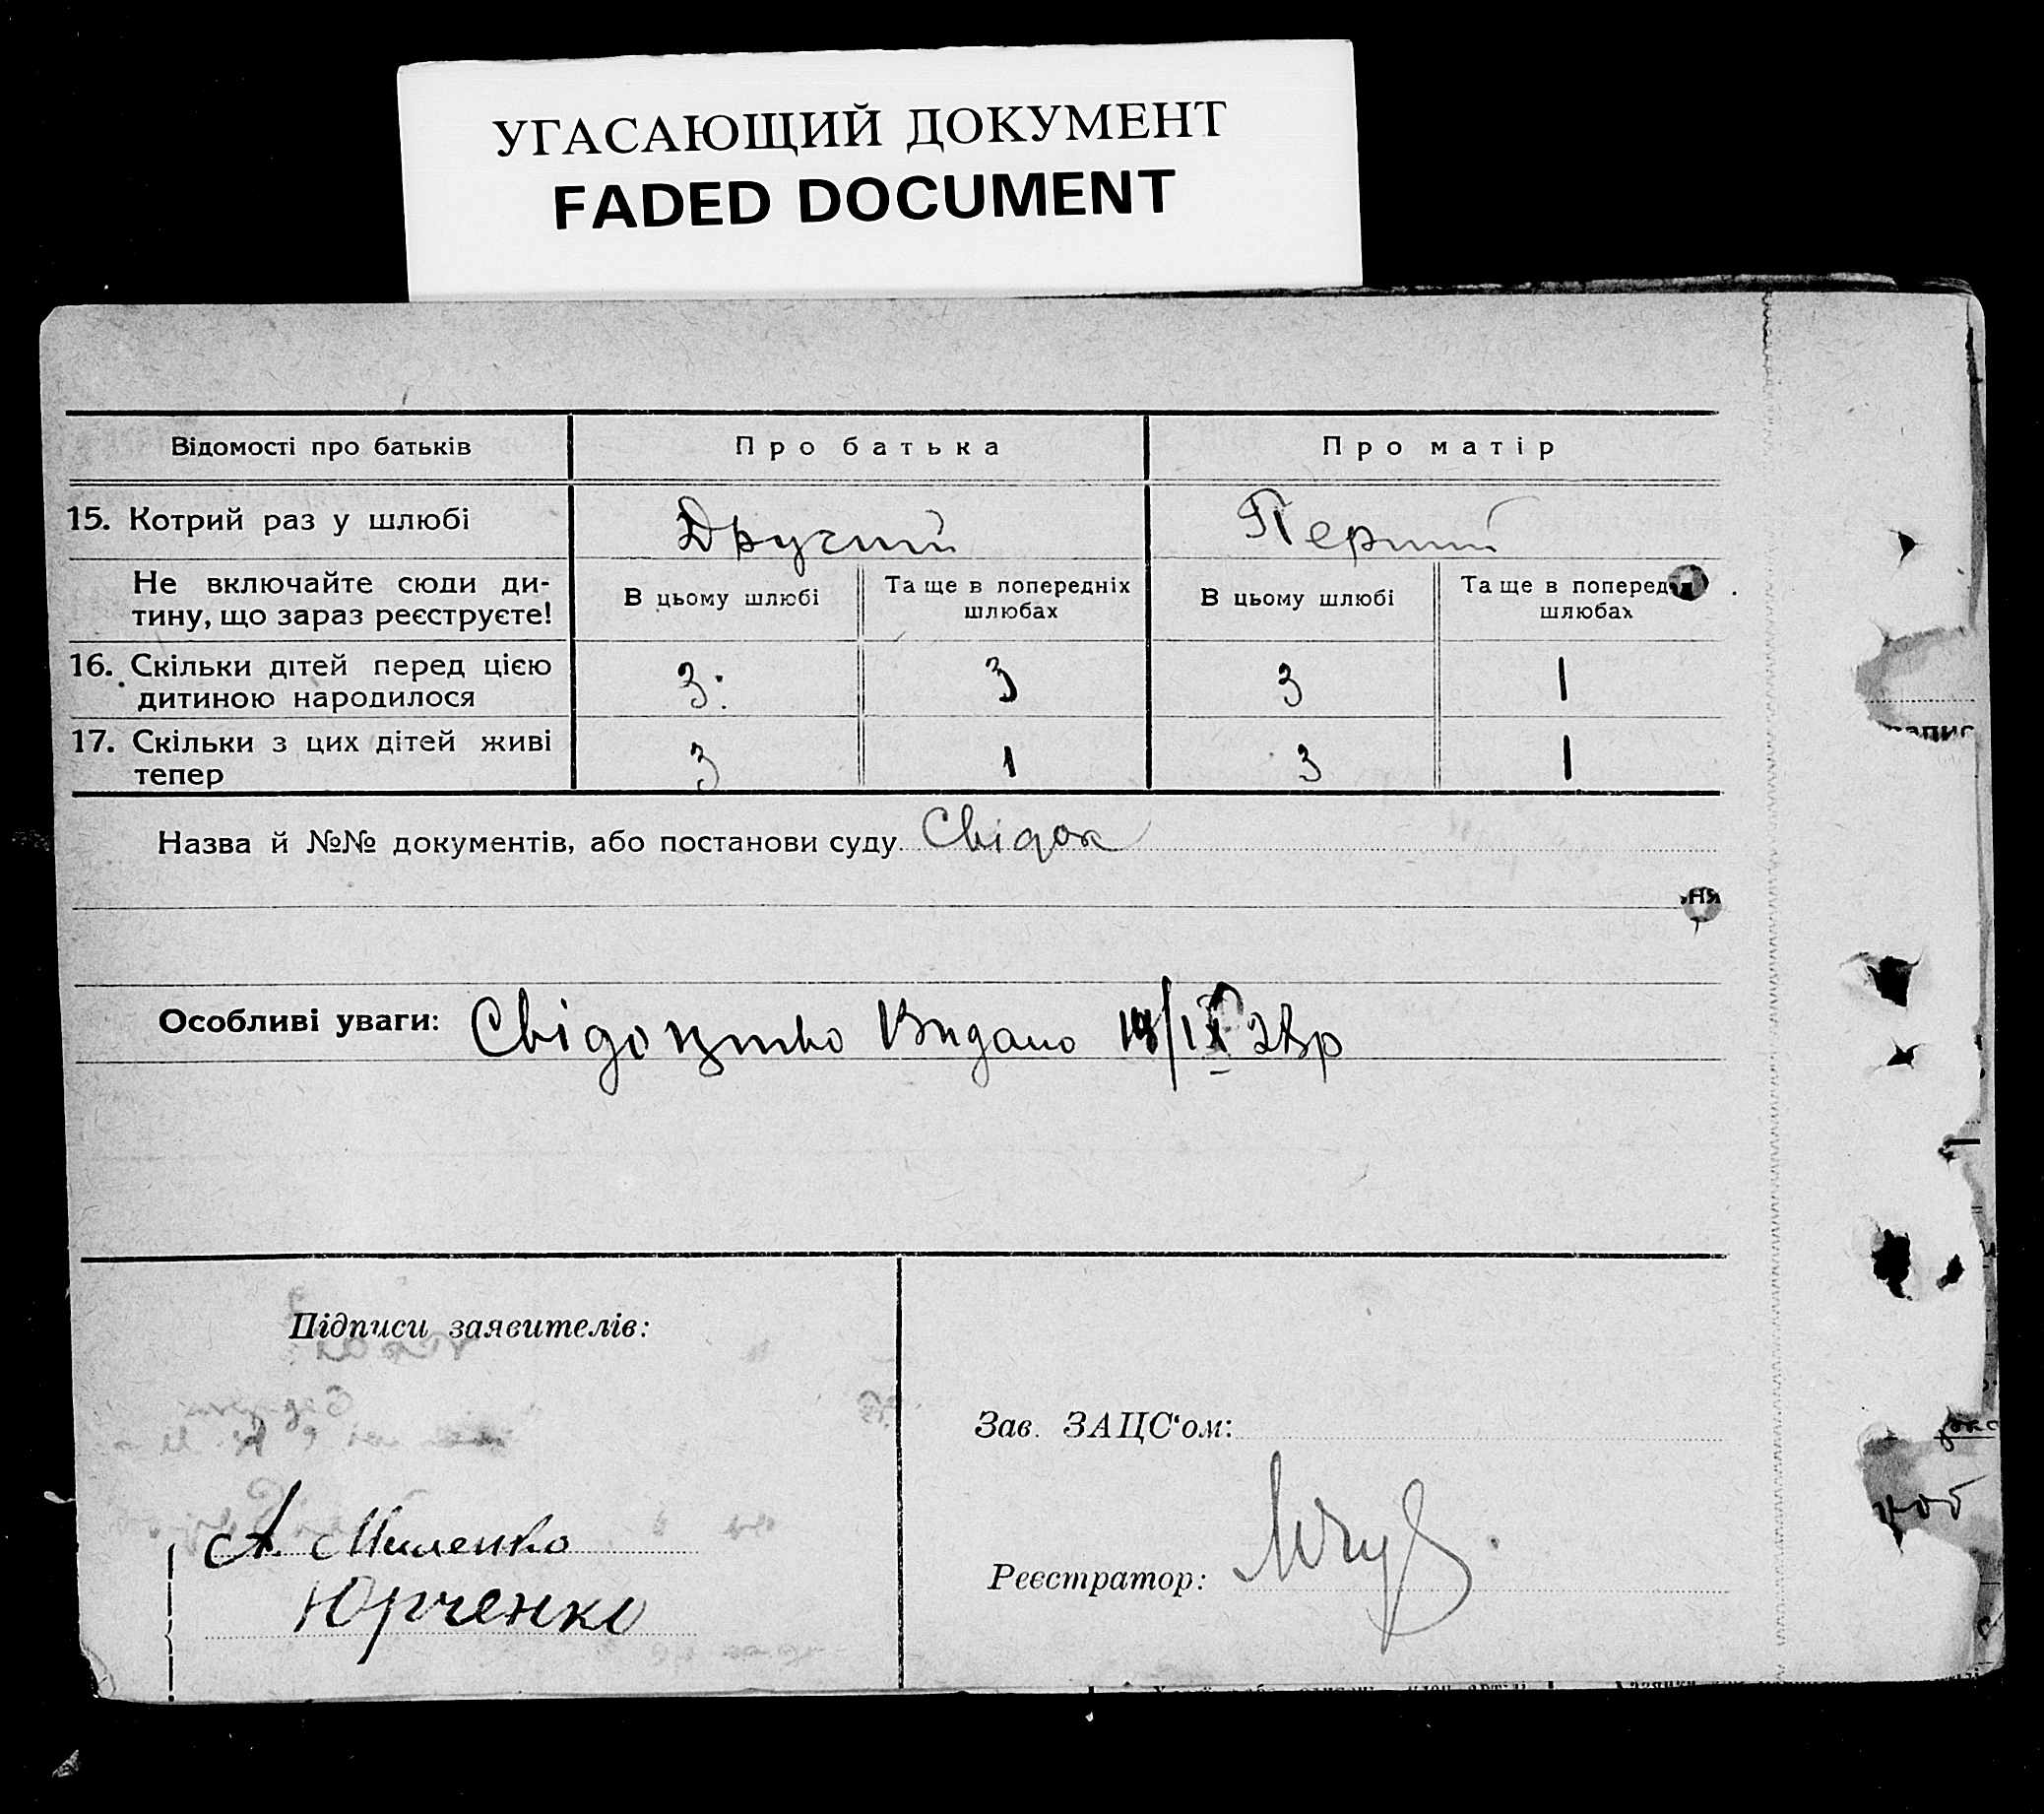 УГАСАЮЩИЙ ДОКУМЕНТ
FADED DOCUMENT
Відомості про батьків
Про батька
Про матір
15. Котрий раз у шлюбі
Другий
Перший
Не включайте сюди ди-
тину, що зараз реєструєте!
В цьому шлюбі
Та ще в попередніх
шлюбах
В цьому шлюбі
Та ще в поперед
шлюбах
16. Скільки дітей перед цією
дитиною народилося
3
3
3
1
17. Скільки з цих дітей живі
тепер
3
1
3
1
Назва й №№ документів, або постанови суду. Свідок
ня
Особливі уваги: Свідоцтво Видано 28р
Підписи заявителів:
Зав. ЗАЦС'ом:
А. Миленко
Юрченко
Реєстратор: